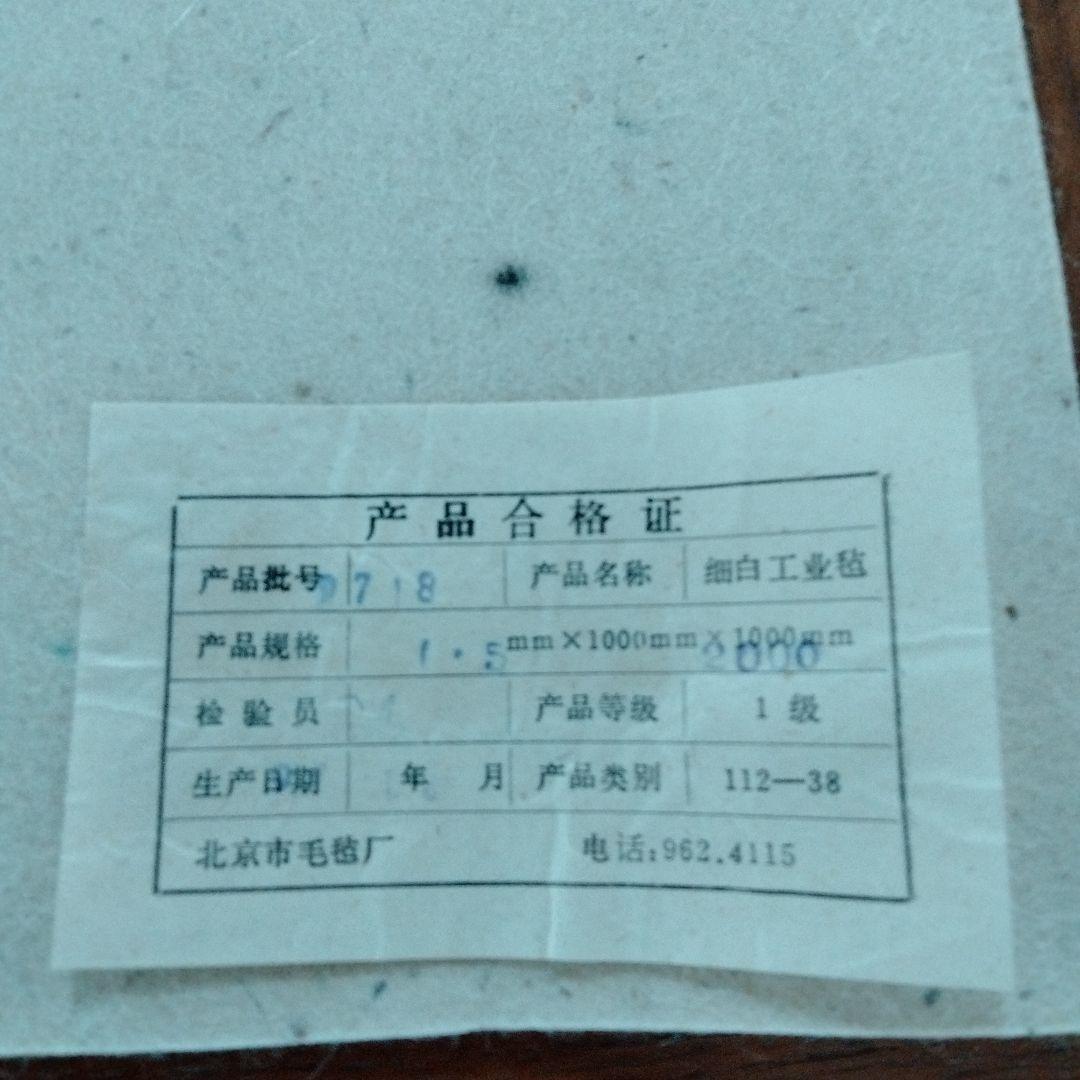 产品合格证
产品批号 9718 产品名称 细白工业毡
产品规格 1.5 mm×1000mm×1000mm 2000
检验员 产品等级 1级
生产日期 年 月 产品类别 112—38
北京市毛毡厂 电话:962.4115